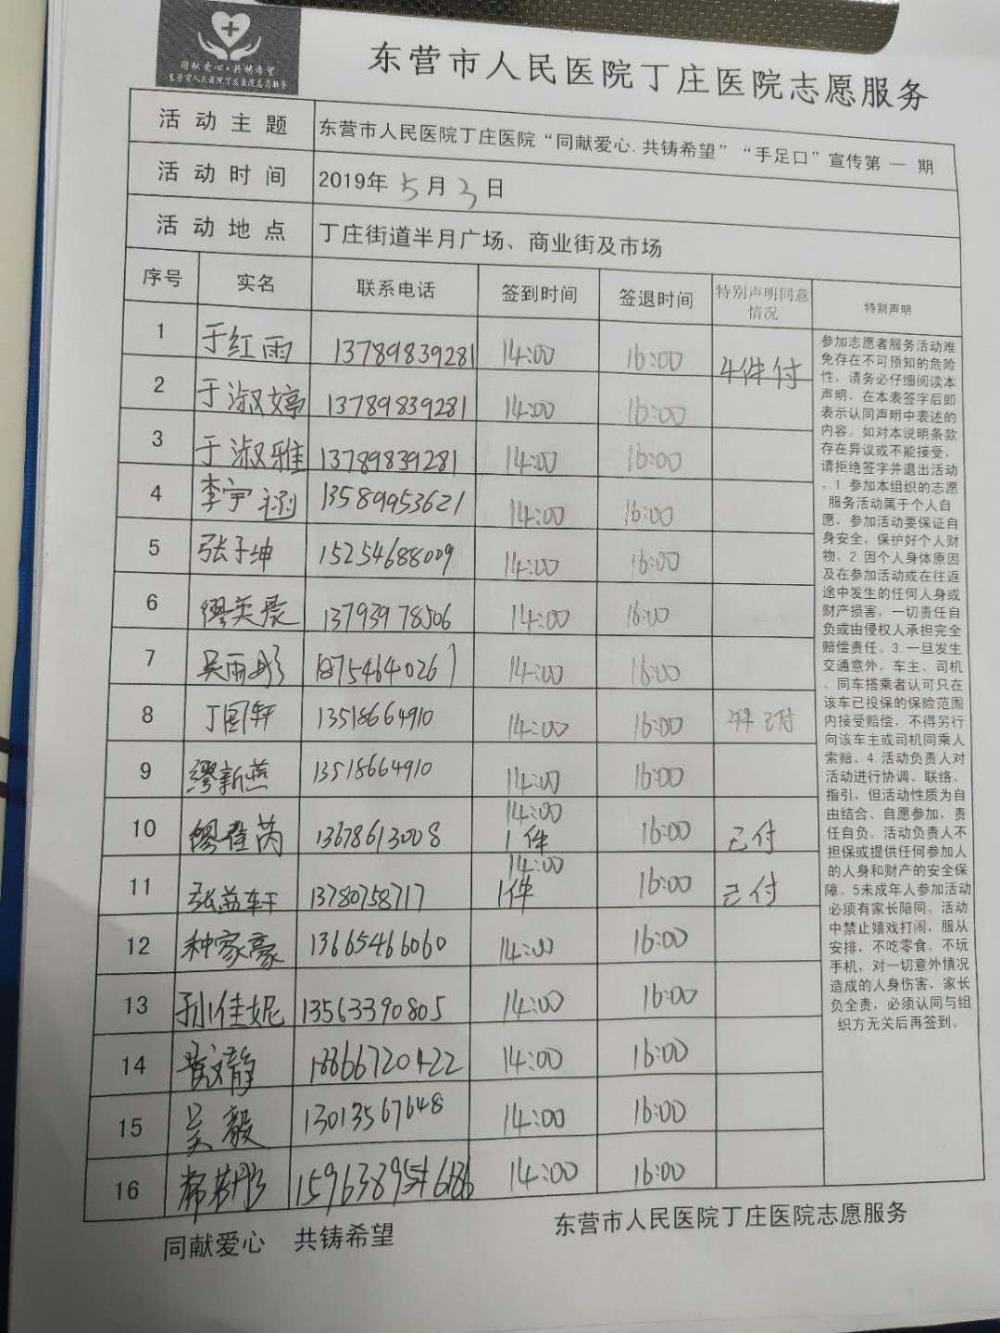 同献爱心·共铸希望
东营市人民医院丁庄医院志愿服务
东营市人民医院丁庄医院志愿服务
活动主题 东营市人民医院丁庄医院“同献爱心.共铸希望”“手足口”宣传第 一 期
活动时间 2019年 5月 3日
活动地点 丁庄街道半月广场、商业街及市场
序号 实名 联系电话 签到时间 签退时间 特别声明同意情况 特别声明
1 于红雨 13789839281 14:00 16:00 4件付
2 于淑婷 13789839281 14:00 16:00
3 于淑雅 13789839281 14:00 16:00
4 李宇涵 13589953621 14:00 16:00
5 张子坤 15254688009 14:00 16:00
6 缪英晨 13793978506 14:00 16:00
7 吴雨彤 18754640267 14:00 16:00
8 丁国轩 13518664910 14:00 16:00 已付
9 缪新燕 13518664910 14:00 16:00
10 缪登芮 13678613008 14:00 1件 16:00 已付
11 张益轩 13780758717 14:00 1件 16:00 已付
12 种家豪 13665466060 14:00 16:00
13 孙佳妮 13563390805 14:00 16:00
14 静 18866720422 14:00 16:00
15 吴毅 13013567648 14:00 16:00
16 彤 14:00 16:00
参加志愿者服务活动难
免存在不可预知的危险
性，请务必仔细阅读本
声明，在本表签字后即
表示认同声明中表述的
内容。如对本说明条款
存在异议或不能接受，
请拒绝签字并退出活动
。1.参加本组织的志愿
服务活动属于个人自
愿，参加活动要保证自
身安全，保护好个人财
物。2.因个人身体原因
及在参加活动或在往返
途中发生的任何人身或
财产损害，一切责任自
负或由侵权人承担完全
赔偿责任。3.一旦发生
交通意外，车主、司机
、同车搭乘者认可只在
该车已投保的保险范围
内接受赔偿，不得另行
向该车主或司机同乘人
索赔。4.活动负责人对
活动进行协调、联络、
指引，但活动性质为自
由结合、自愿参加，责
任自负。活动负责人不
担保或提供任何参加人
的人身和财产的安全保
障。5未成年人参加活动
必须有家长陪同。活动
中禁止嬉戏打闹，服从
安排，不吃零食，不玩
手机，对一切意外情况
造成的人身伤害，家长
负全责，必须认同与组
织方无关后再签到。
同献爱心 共铸希望 东营市人民医院丁庄医院志愿服务